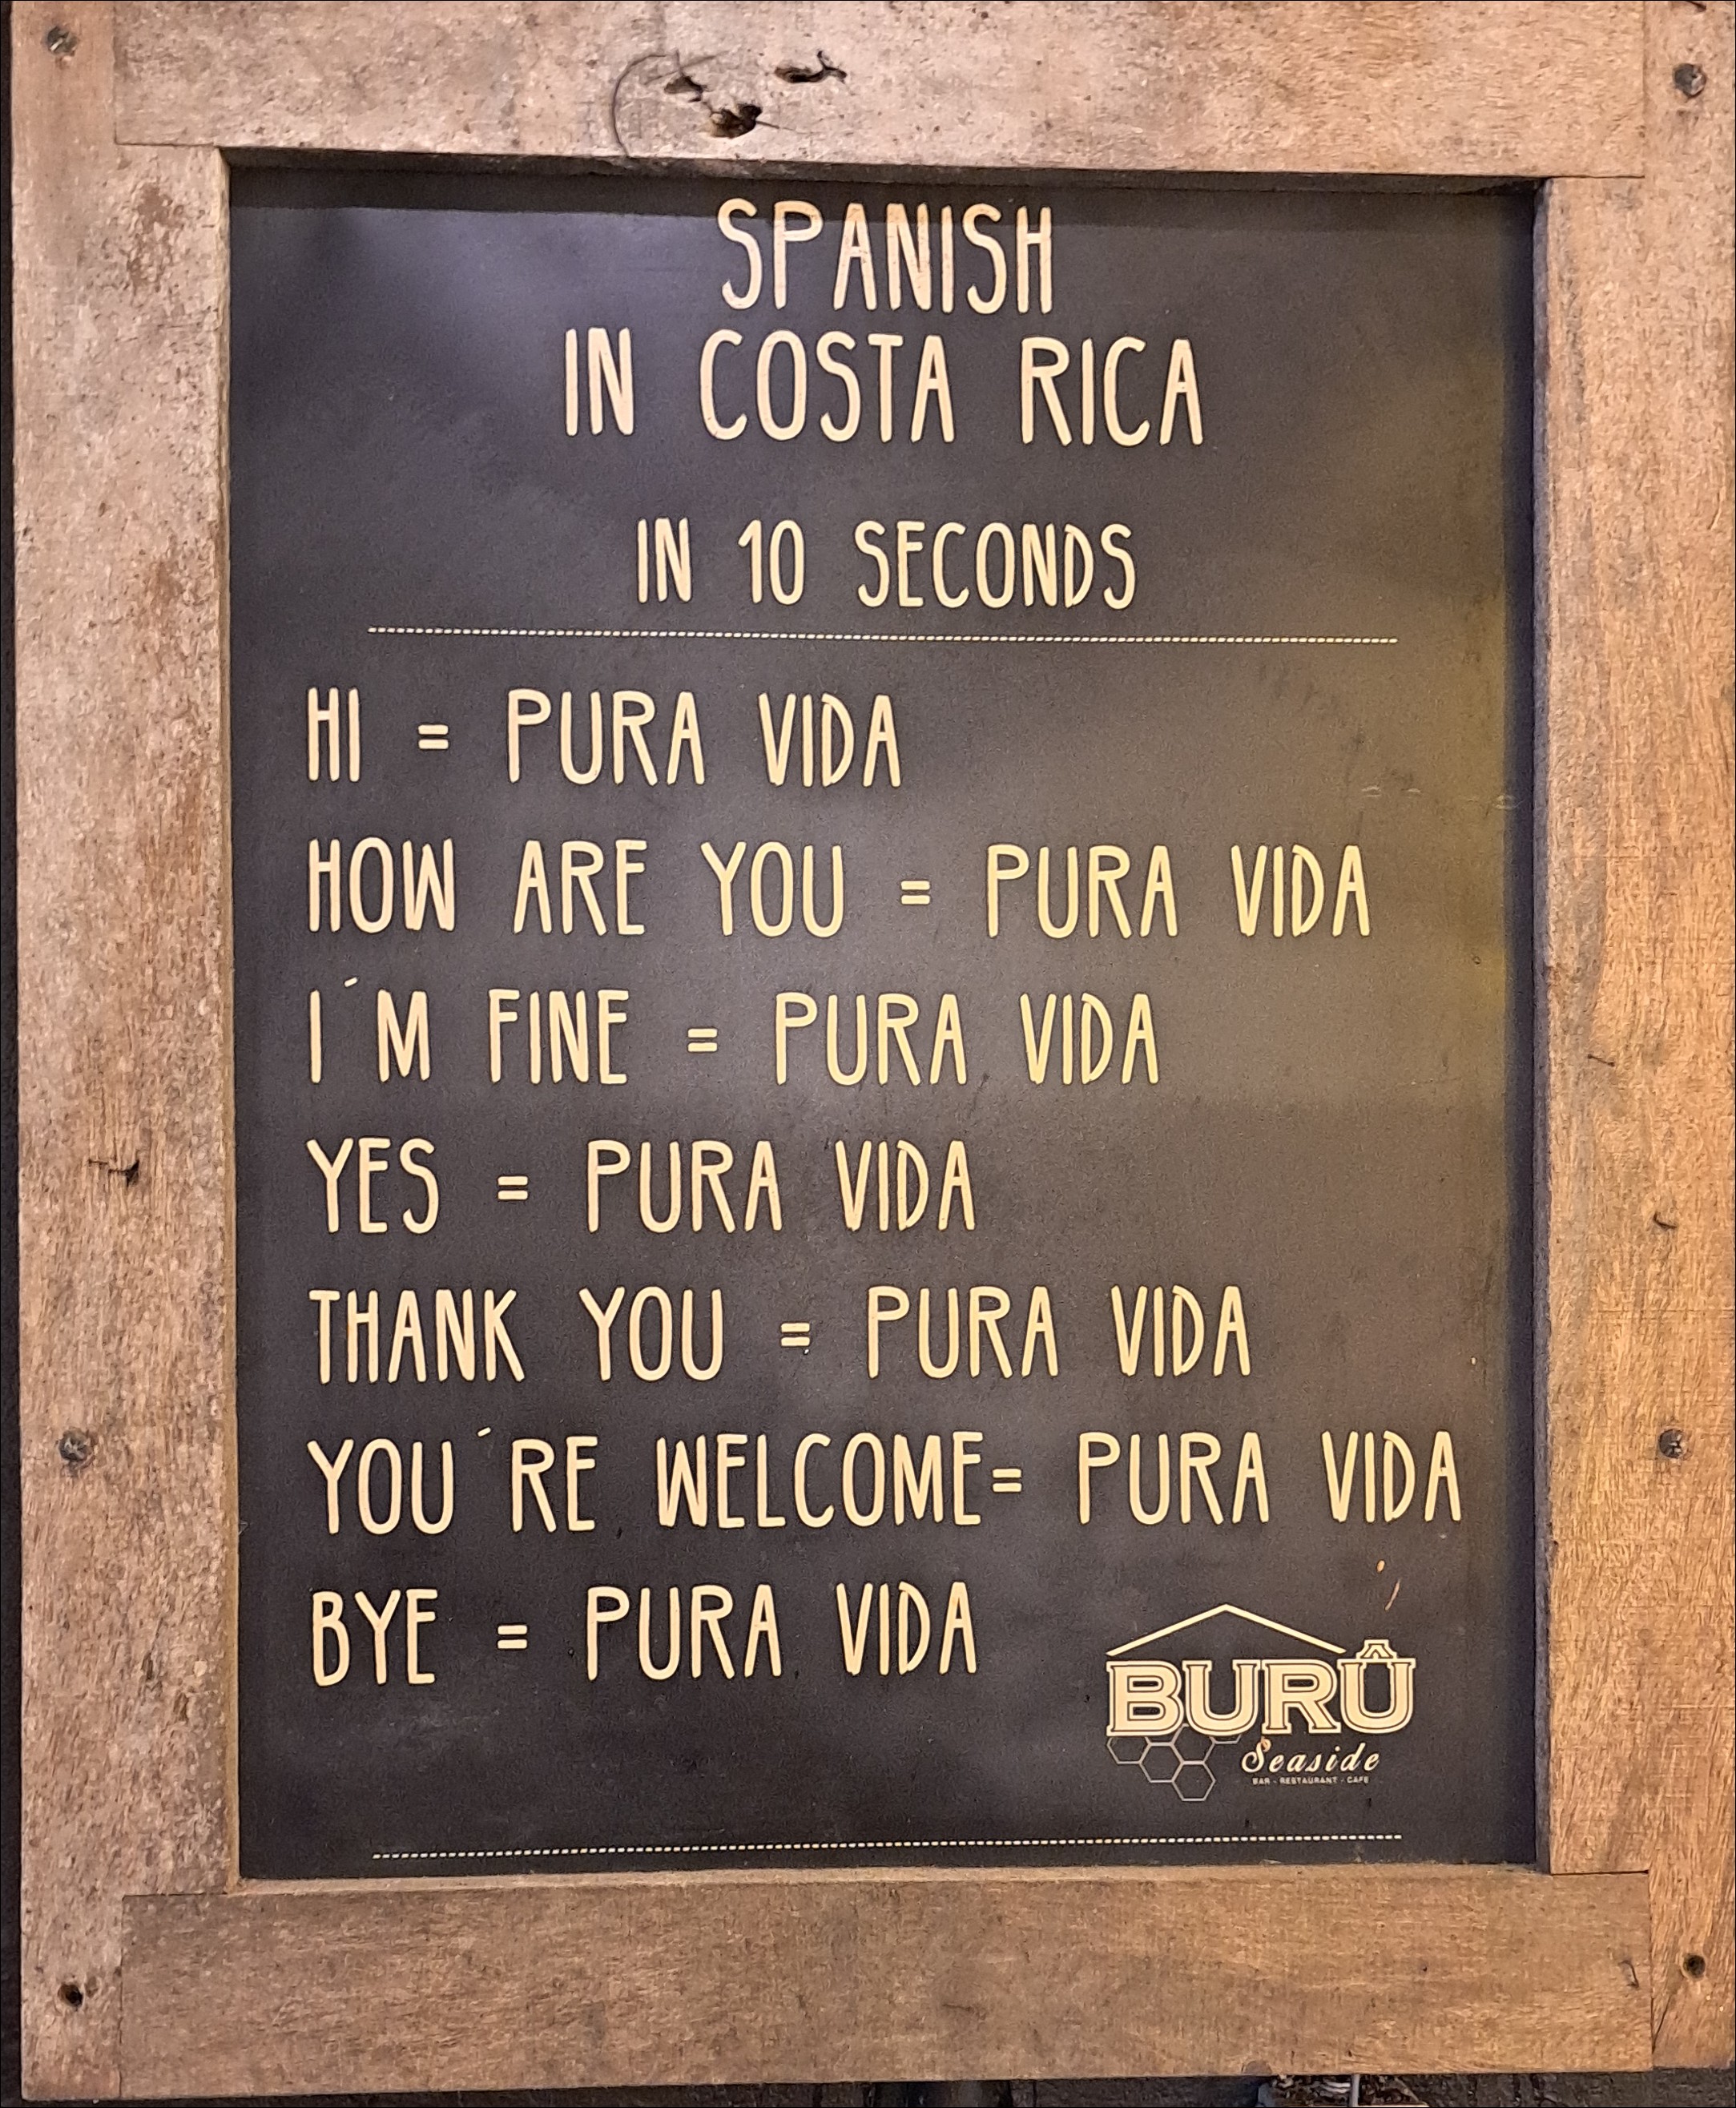 SPANISH
IN COSTA RICA
IN 10 SECONDS
HI = PURA VIDA
HOW ARE YOU = PURA VIDA
I´M FINE = PURA VIDA
YES = PURA VIDA
THANK YOU = PURA VIDA
YOU´RE WELCOME= PURA VIDA
BYE = PURA VIDA
BURÛ
Seaside
BAR - RESTAURANT - CAFE